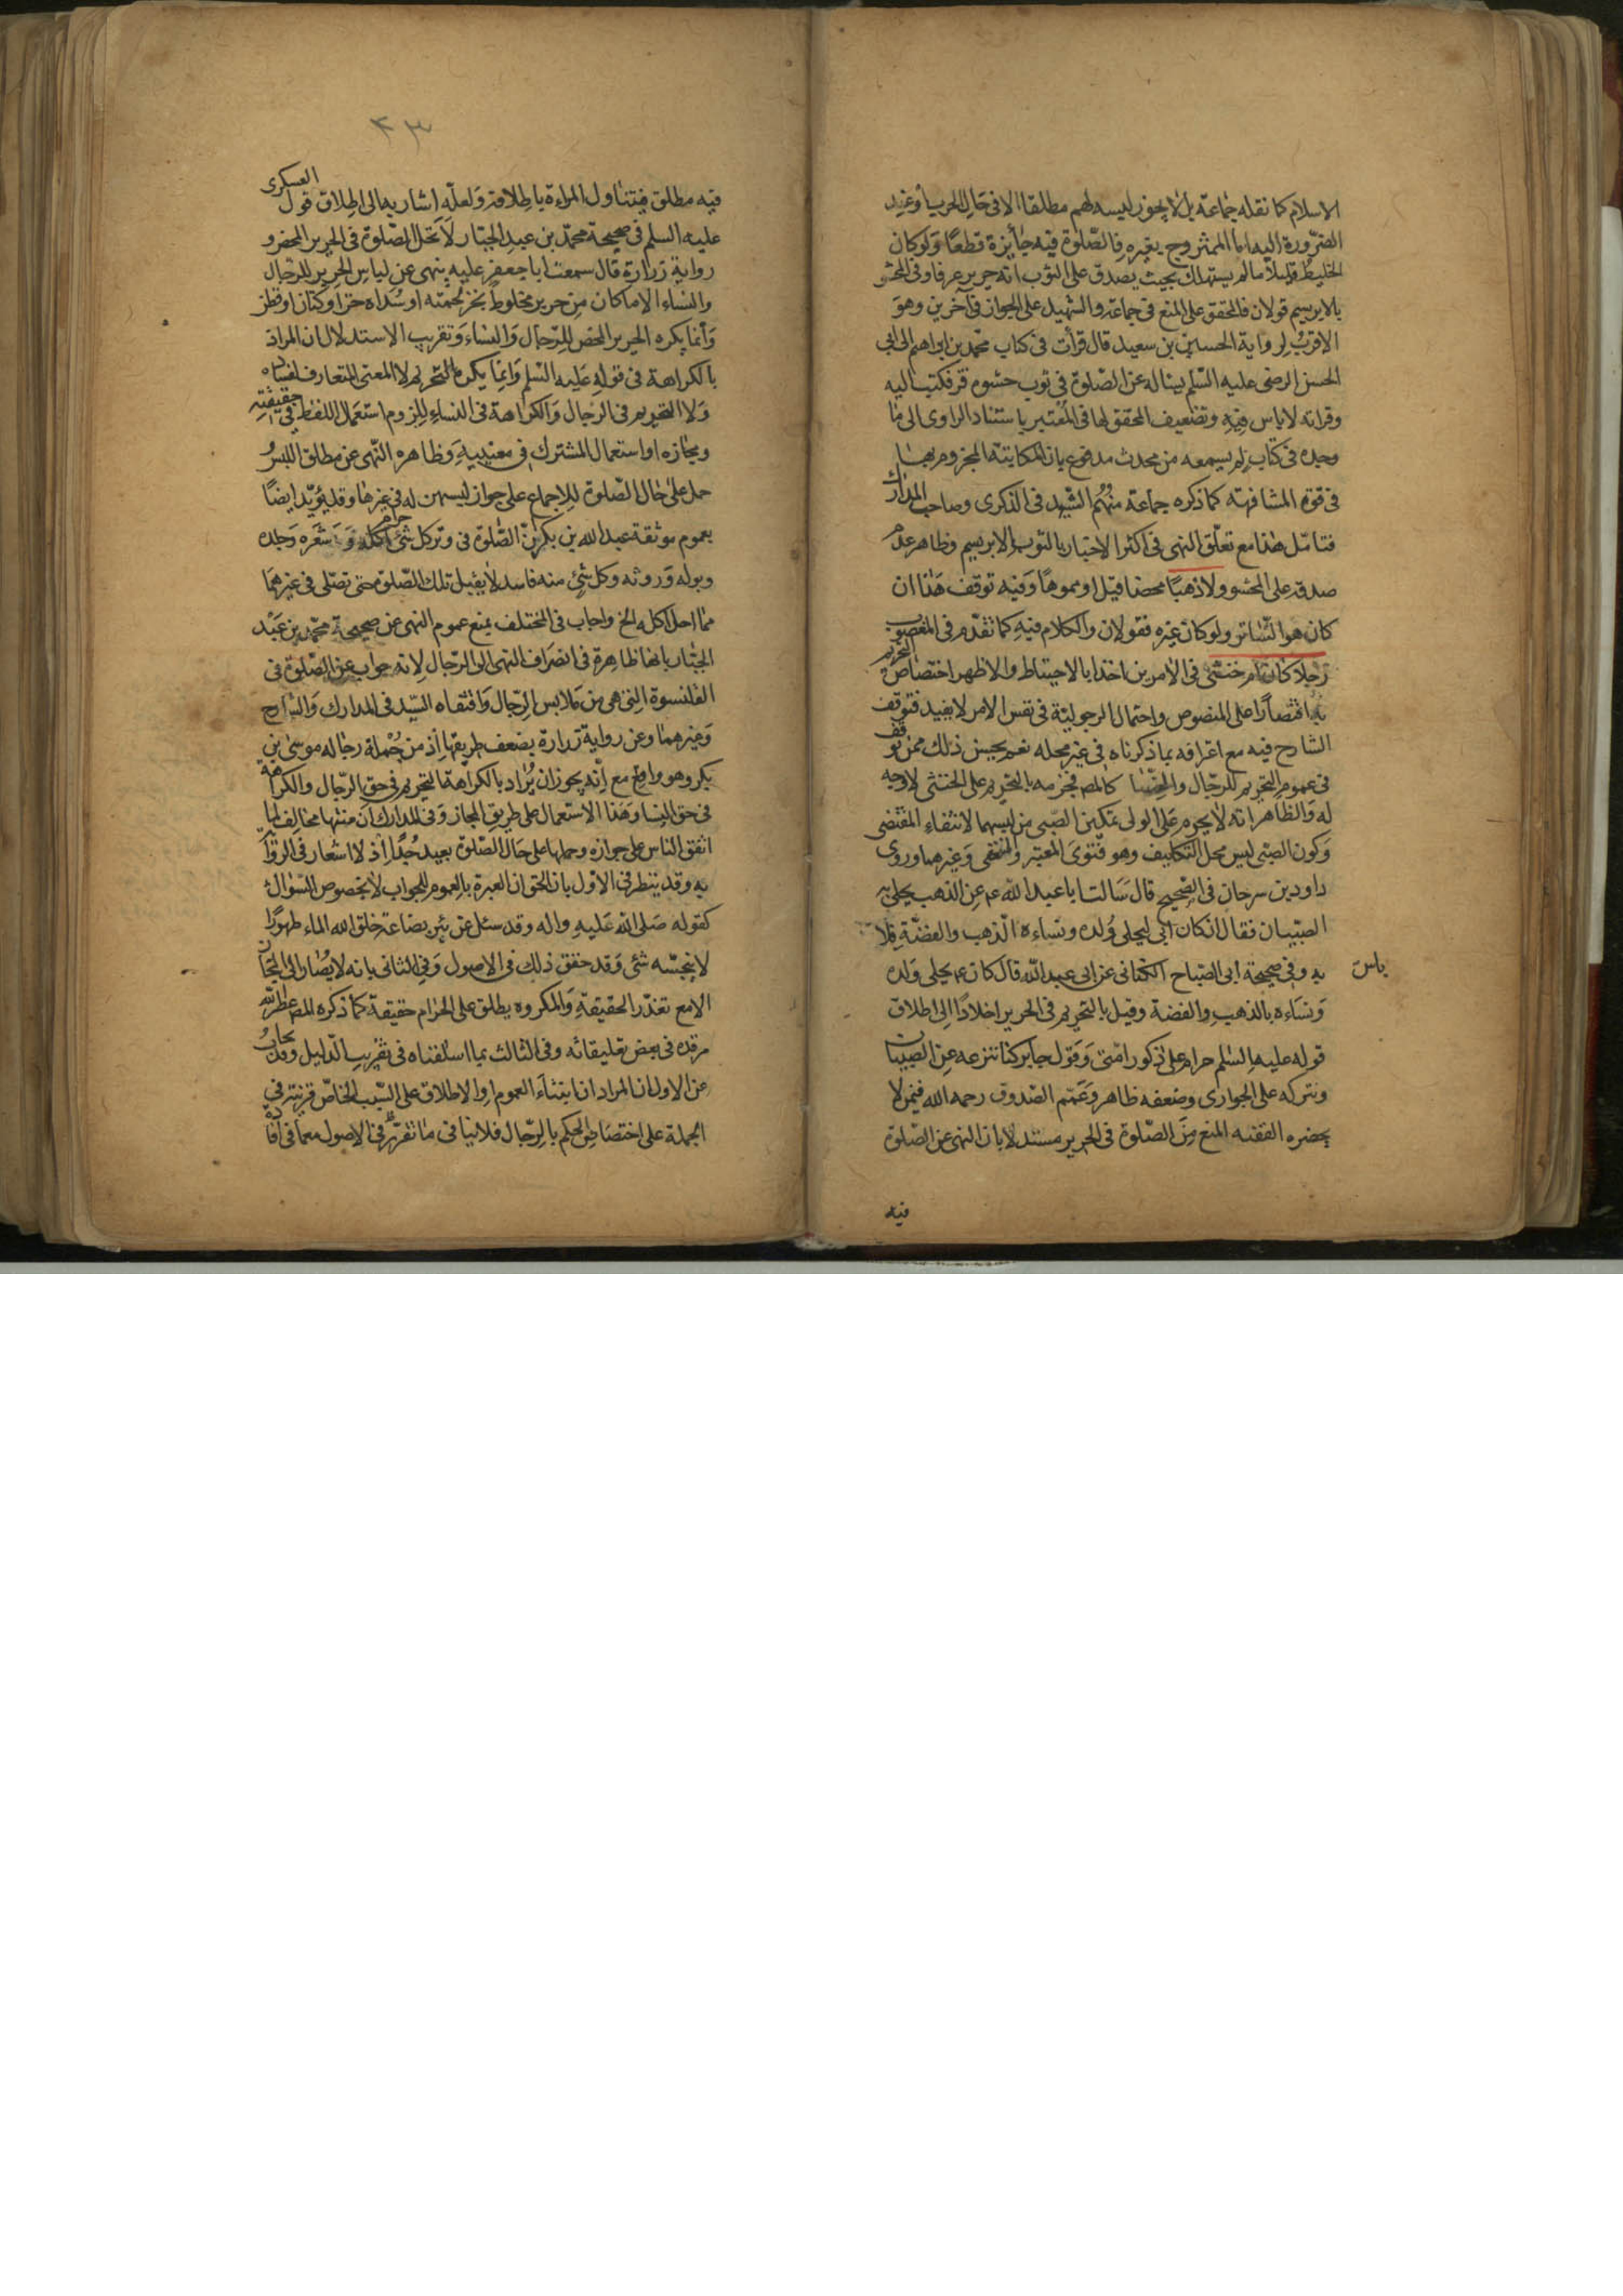 الاسلام كما نقله جماعة بل لا يجوز لبسه لهم مطلقا الا في حال الحرب أو عند
الضرورة اليه اما الممتزوج بغيره فالصّلوة فيه جايزة قطعًا ولو كان
الخليط قليلاً ما لم يستهلك بحيث يصدق على الثوب انه حرير عرفا وفى المحشو
بالابريسم قولان فالمحقق على المنع في جماعة والشهيد على الجواز في آخرين وهو
الاقرب لرواية الحسين بن سعيد قال قرأت في كتاب محمد بن ابراهيم الى ابي
الحسن الرضى عليه السّلم يساله عن الصّلوة في ثوب حشوه قز فكتب اليه
وقراته لا باس فيه وتضعيف المحقق لها في المعتبر باستناد الراوى الى ما
وجده في كتاب لم يسمعه من محدث مدفوع بان المكاتبة المجزوم بها
في قوة المشافهة كما ذكره جماعة منهم الشهيد في الذكرى وصاحب المدارك
فتامّل هذا مع تعلّق النهى في اكثر الاخبار بالثوب الابريسم وظاهر عدم
صدقه على المحشو ولا ذهبًا محضا قيل او مموهًا وفيه توقف هذا ان
كان هو السّاتر ولو كان غيره فقولان والكلام فيه كما تقدّم في المغصوب
رجلا كان ام خنثى في الامرين اخذا بالاحتياط والاظهر اختصاص التحريم
به اقتصارًا على المنصوص واحتمال الرجولية في نفس الامر لا يفيد فتوقف
الشارح فيه مع اعترافه بما ذكرناه في غير محله نعم يحسن ذلك ممن توقف
في عموم التحريم للرجال والخنثا كالمص فجزمه بالتحريم على الخنثى لا وجه
له والظاهر انه لا يحرم على الولى تمكين الصّبى من لبسهما لانتفاء المقتضى
وكون الصبّى ليس محل التكليف وهو فتوى المعتبر والمنتهى وغيرهما وروى
داود بن سرحان في الصحيح قال سالت ابا عبد الله عم عن الذهب يحلى به
الصبيان فقال ان كان ابى ليحلى ولده ونساءه الذهب والفضّة فلا
باس
به وفى صحيحة ابى الصّباح الكنانى عن ابى عبد الله قال كان عم يحلى ولده
ونساءه بالذهب والفضة وقيل بالتحريم في الحرير اخلادًا الى اطلاق
قوله عليه السّلم حرام على ذكور امّتى وقول جابر كنا ننزعه عن الصبيان
ونتركه على الجوارى وضعفه ظاهر وعمّم الصّدوق رحمه الله فيمن لا
يحضره الفقيه المنع من الصّلوة في الحرير مستندلا بان النهى عن الصّلوة
فيه
۴۳
فيه مطلق فيتناول المراءة باطلاقه ولعلّه اشار به الى اطلاق قول العسكرى
عليه السلم في صحيحة محمّد بن عبد الجبّار لا تحل الصّلوة في الحرير المحض و
رواية زرارة قال سمعت ابا جعفر عليه ينهى عن لباس الحرير للرجال
والنساء الا ما كان من حرير مخلوط بخز لحمته او سُداه خز او كتان او قطن
وأنما يكره الحرير المحض للرجال والنساء وتقريب الاستدلال ان المراد
بالكراهة في قوله عليه السّلم وانما يكره التحريم لا المعنى المتعارف لفساده
ولا التحريم في الرجال والكراهة في النساء للزوم استعمال اللفظ في حقيقته
ومجازه او استعمال المشترك في معنييه وظاهره النّهى عن مطلق اللبس
حمل على حال الصّلوة للاجماع على جواز لبسهن له في غيرها وقد يؤيّد ايضًا
بعموم موثقة عبد الله بن بكر انّ الصّلوة في وتر كل شئ حرام اكله وشعره وجلده
وبوله وروثه وكل شئ منه فاسد لا يقبل تلك الصّلوة حتى تصلى في غيرهما
ممّا احل اكله الخ واجاب في المختلف بمنع عموم النهى عن صحيحة محمّد بن عبد
الجبّار بانها ظاهرة في انصراف النهى الى الرجال لانه جواب عن الصّلوة في
القلنسوة التى هى من ملابس الرّجال واقتفاه السيّد في المدارك والشارح
وغيرهما وعن رواية زرارة بضعف طريقها اذ من جملة رجاله موسى بن
بكر وهو واقفٍ مع انه يجوز ان يُراد بالكراهة التحريم في حق الرّجال والكراهة
في حق النسا وهذا الاستعمال على طريق المجاز وفى المدارك ان متنها مخالف لما
اتفق الناس على جوازه وحملها على حال الصّلوة بعيد جدًا اذ لا اشعار في الرواية
به وقد ينظر في الاوّل بان الحق ان العبرة بالعموم للجواب لا بخصوص السّوال
كقوله صلى الله عليه واله وقد سئل عن بئر بضاعة خلق الله الماء طهورًا
لا ينجسّه شئ وقد حقق ذلك في الاصول وفى الثانى بانه لا يُصار الى المجاز
الا مع تعذّر الحقيقة والمكروه يطلق على الحرام حقيقة كما ذكره المص عطر الله
مرقده في بعض تعليقاته وفى الثالث بما اسلفناه في تقريب الدّليل وقد يجاب
عن الاول ان المراد ان ابتناء العموم او الاطلاق على السّبب الخاصّ قرينة في
الجملة على اختصاص الحكم بالرّجال فلا ينافى ما تقرّر في الاصول معما في افا